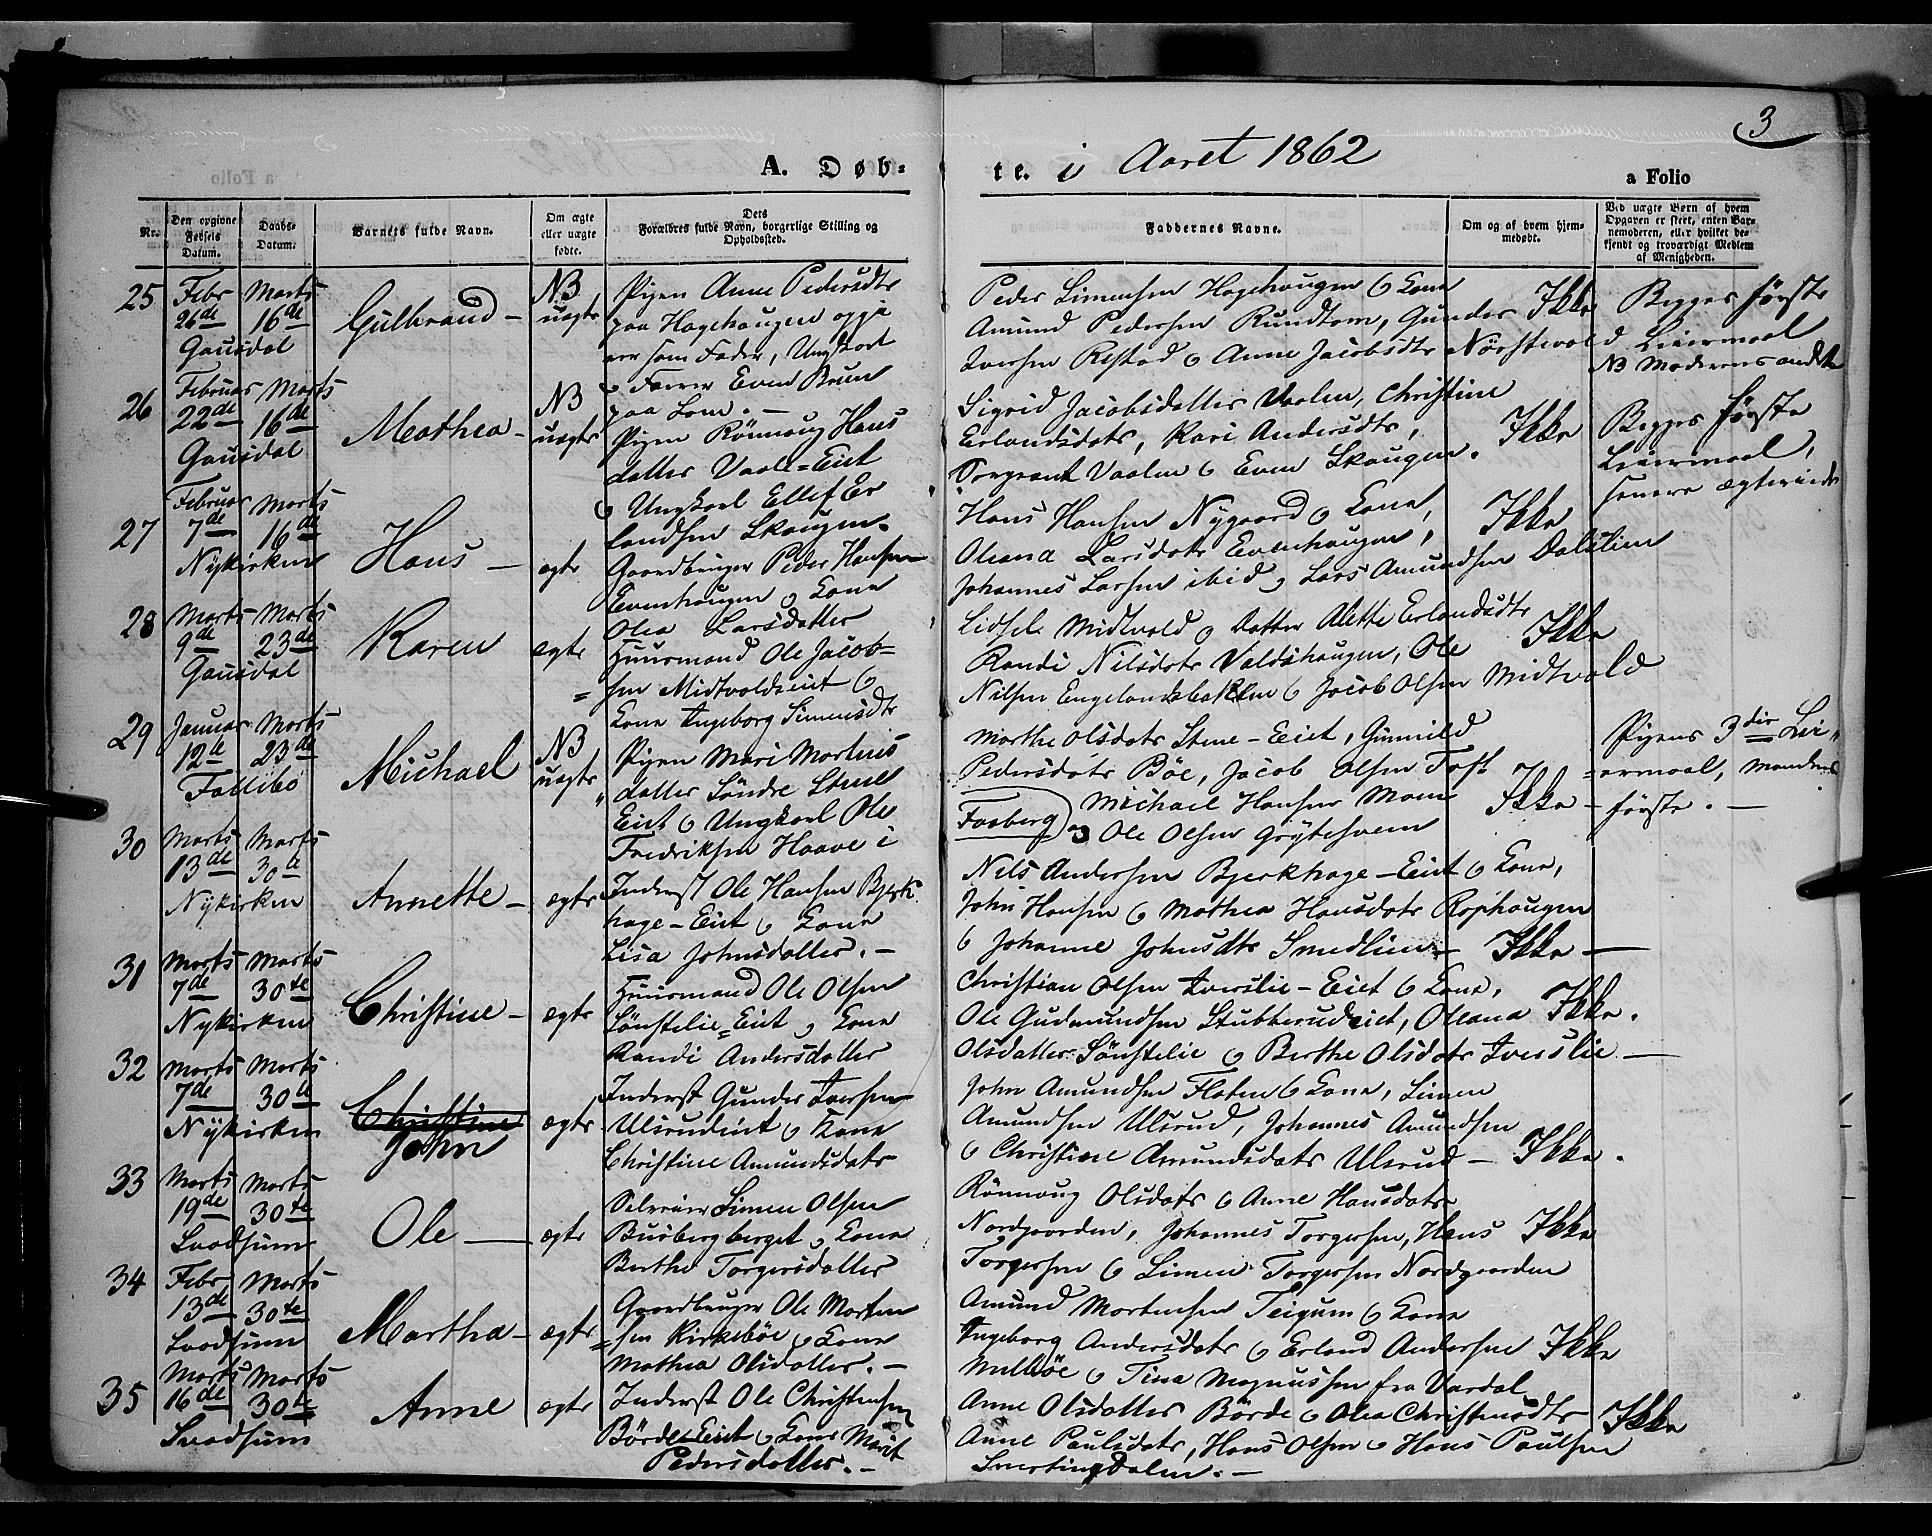 3
A. Døb-
te. i Aaret 1862
a Folio
Nr.
Den opgivne Fødsels Datum.
Daabs-Datum.
Barnets fulde Navn.
Om ægte eller uægte fødte.
Dets Forældres fulde Navn, borgerlige Stilling og Opholdssted.
Faddernes Navne.
Om og af hvem hjemmedøbt.
Ved uægte Børn af hvem
Opgaven er skeet, enten Bar-
nemoderen, eller hvilket be-
kjendt og troværdigt Medlem
af Menigheden.
25
Febr 26de Gausdal
Marts 16de
Gulbrand –
NB uægte
Pigen Anne Pedersdtr
paa Hagehaugen opgi
ver som Fader, Ungkarl
o Farver Even Bruun
paa Lom. –
Peder Simensen Hagehaugen o Kone
Amund Pedersen Rundtom, Gunder
Iversen Restad o Anne Jacobsdtr Nörstevold
Ikke
Begges første
Leiermaal
NB Moderens andet
26
Februar 22de Gausdal
Marts 16de
Mathea –
NB uægte
Pigen Rönnaug Hans
datter Vaale=Eiet
o Ungkarl Ellef Er
landsen Skaugen.
Sigrid Jacobsdatter Vaalen, Christine
Erlandsdatr, Kari Andersdtr,
Torgrant Vaalen o Even Skaugen.
Ikke
Begges første
Leiermaal,
senere ægteviede
27
Februar 7de Nykirken
Marts 16de
Hans –
ægte
Gaardbruger Peder Hansen
Evenhaugen o Kone
Olea Larsdatter
Hans Hansen Nygaard o Kone,
Oleana Larsdatr Evenhaugen,
Johannes Larsen ibid, Lars Amundsen Dalslien
Ikke
28
Marts 9de Gausdal
Marts 23de
Karen
ægte
Huusmand Ole Jacob=
=sen Midtvoldseiet o
Kone Ingeborg Simensdtr
Lidsele Midtvold o Datter Alette Erlandsdtr
Randi Nilsdatr Valdshaugen, Ole
Nilsen Engelandsbakken o Jacob Olsen Midtvold
Ikke
29
Januar 12te Follebo
Marts 23de
Michael
NB uægte
Pigen Mari Martins
datter Søndre Steens
Eiet o Ungkarl Ole
Fredriksen Haave i
Faaberg
Marthe Olsdatr Stene-Eiet, Gunnild
Pedersdatr Böe, Jacob Olsen Toft
Michael Hansen Moen
og Ole Olsen Grytesveen
Ikke –
Pigens 3die Lei
=ermaal, Mandens
første. –
30
Marts 13de Nykirken
Marts 30te
Annette –
ægte
Inderst Ole Hansen Bjerk
hage-Eiet o Kone
Lisa Johnsdatter. –
Nils Andersen Bjerkhage-Eiet o Kone,
John Hansen o Mathea Hansdatr Rophaugen
o Johanne Johnsdtr Smedlien –
Ikke –
31
Marts 7de Nykirken
Marts 30te
Christine –
ægte
Huusmand Ole Olsen
Sönstelie=Eiet o Kone
Randi Andersdatter
Christian Olsen Iverslie-Eiet o Kone,
Ole Gudmundsen Stubberudeiet, Oleana
Olsdatter Sönstelie o Berthe Olsdatr Iverslie –
Ikke.
32
Marts 7de Nykirken
Marts 30te
Christine
John
ægte
Inderst Gunder Iversen
Ulsrudeiet o Kone
Christine Amundsdatr
John Amundsen Floten o Kone, Simen
Amundsen Ulsrud, Johannes Amundsen
o Christine Amundsdatr Ulsrud –
Ikke.
33
Marts 19de Svadsum
Marts 30te
Ole –
ægte
Selveier Simen Olsen
Busbergberget o Kone
Berthe Torgersdatter
Rönnaug Olsdatr o Anne Hansdatr
Nordgaarden, Johannes Torgersen, Hans
Torgersen o Simen Torgersen Nordgaarden
Ikke
34
Febr 13de Svadsum
Marts 30te
Martha –
ægte
Gaardbruger Ole Morten
=sen Kirkeböe o Kone
Mathea Olsdatter. –
Amund Mortensen Teigum o Kone
Ingeborg Andersdatr o Erland Andersen
Melböe o Tina Magnussen fra Vardal
Ikke
35
Marts 16de Svadsum
Marts 30te
Anne
ægte
Inderst Ole Christensen
Börde-Eiet o Kone Marit
Pedersdatter. –
Anne Olsdatter Börde o Olea Christensdtr
Anne Paulsdatr, Hans Olsen o Hans Paulsen
Svertingdalen. –
Ikke